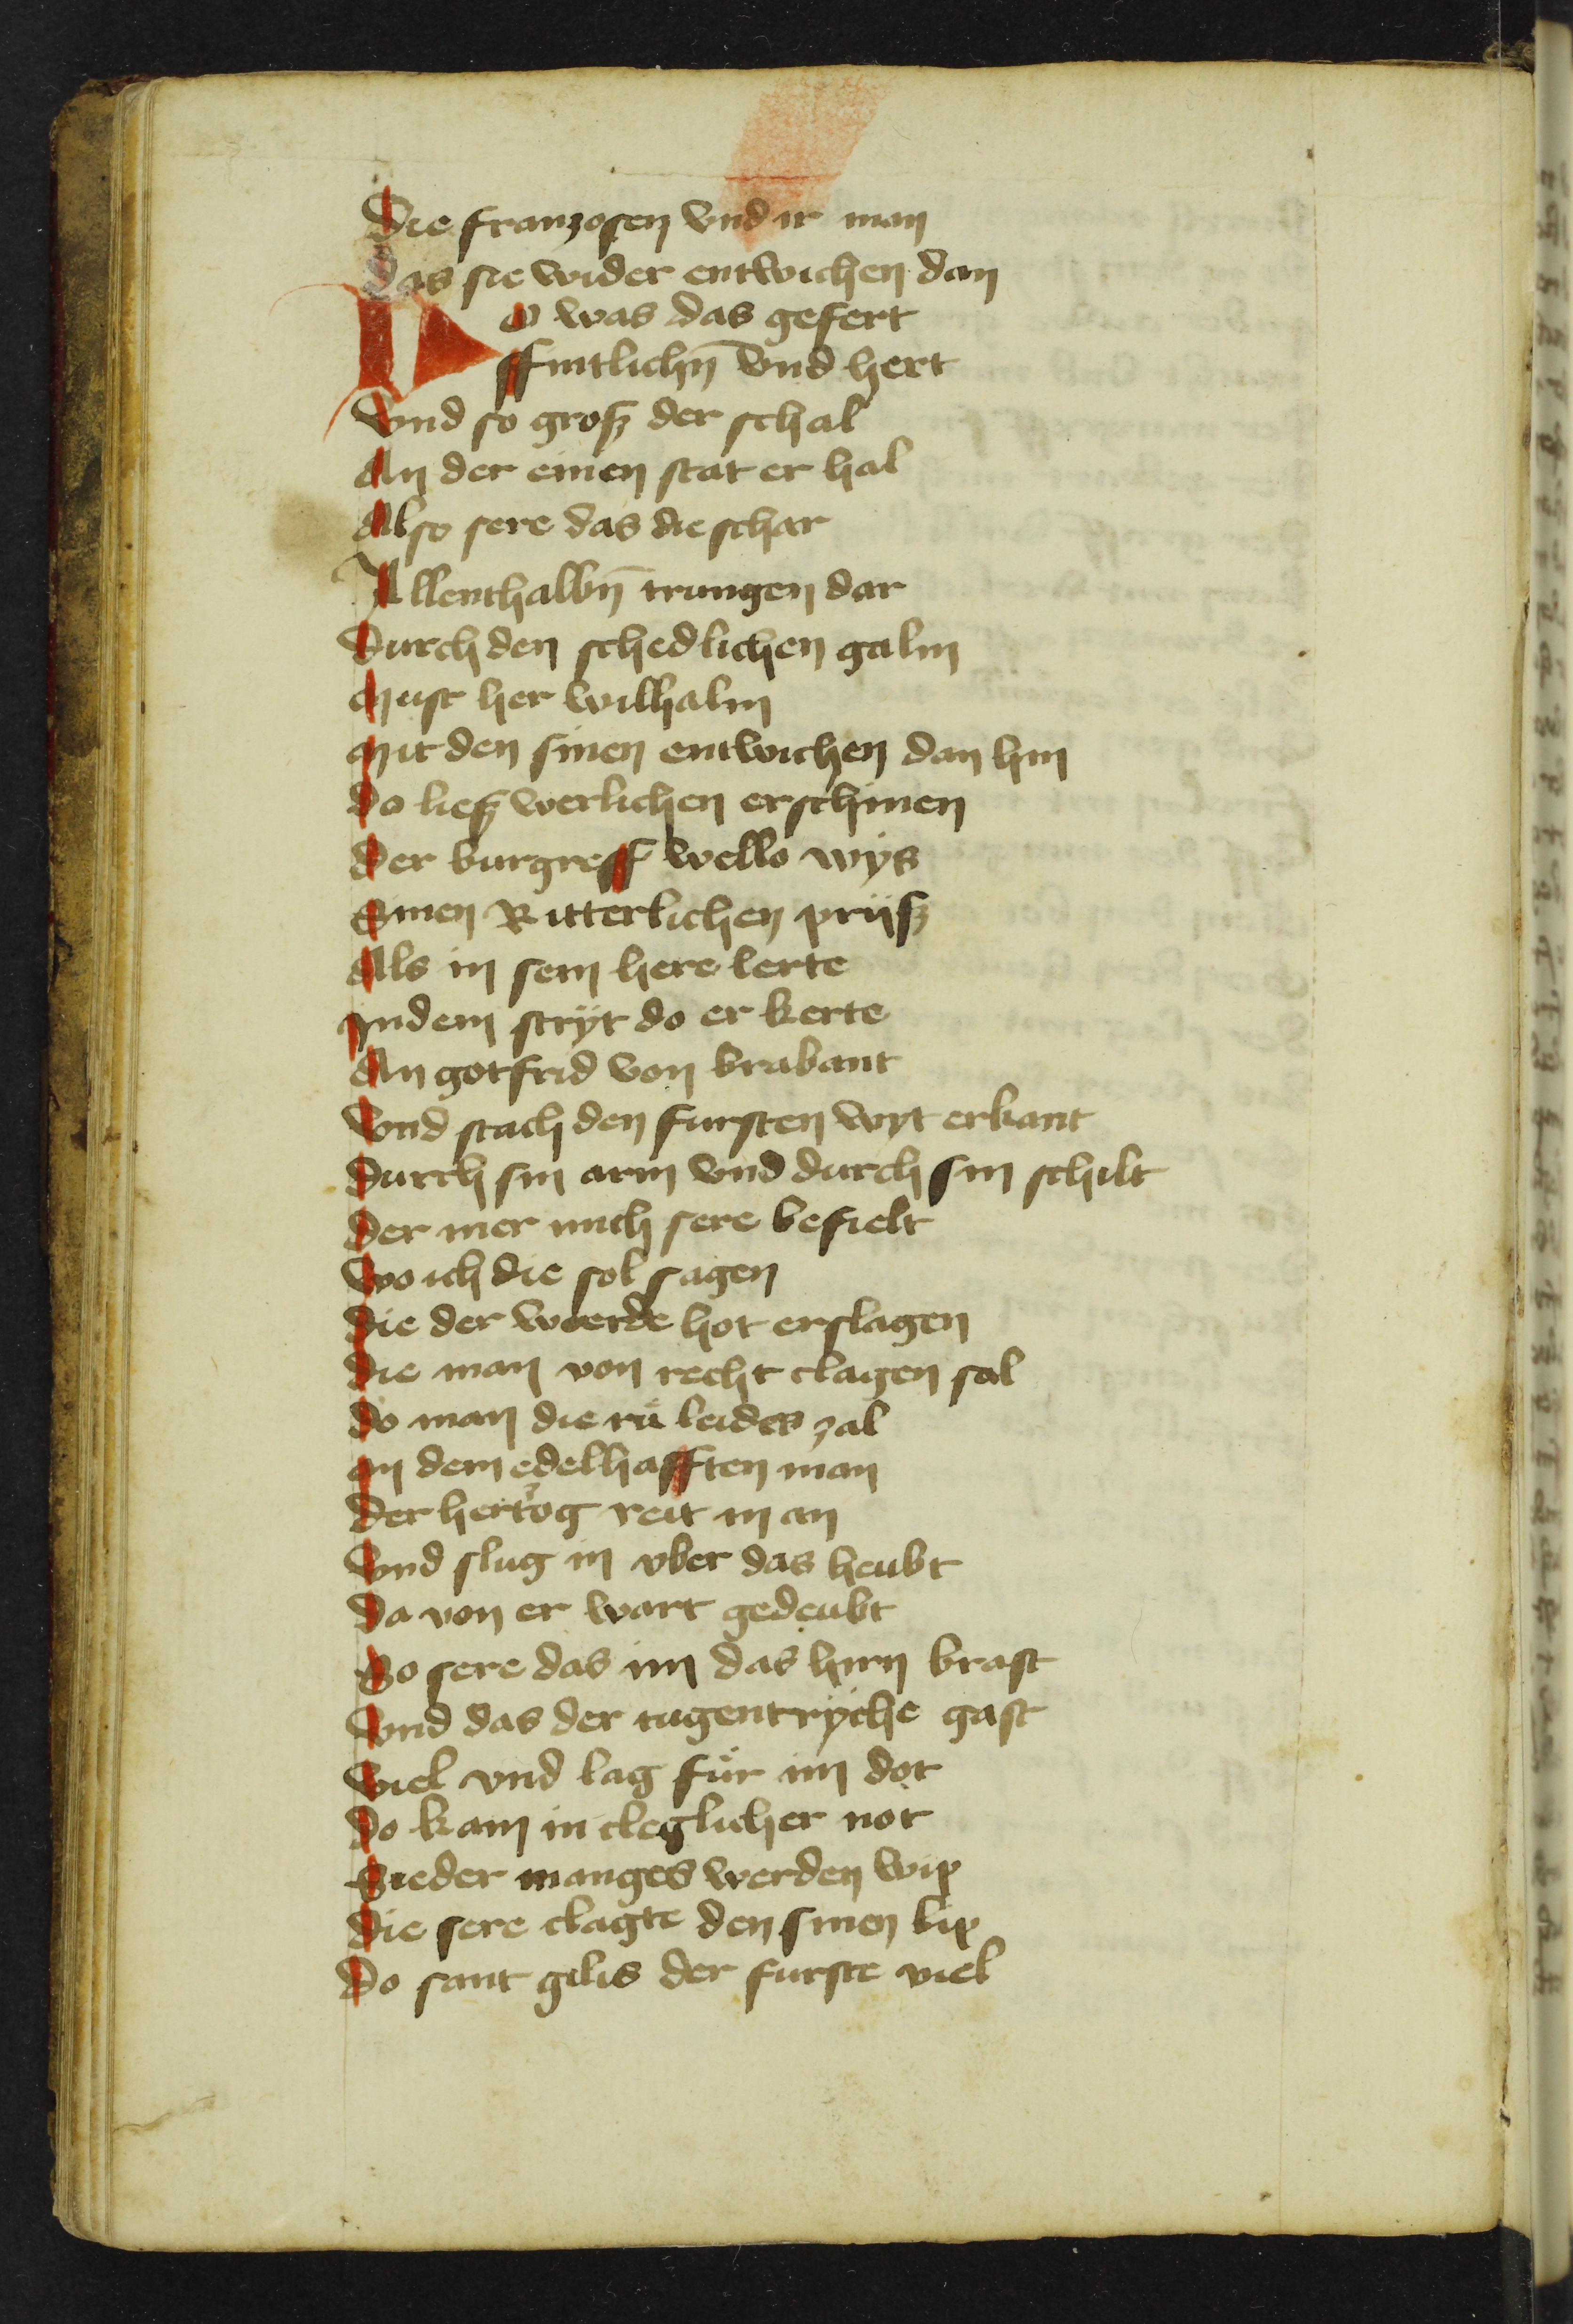 Die franzosen vnd ir man
Das sie wider entwichen dan
Do was das gefert
ffintlichn̄ vnd hert
Vnd so grosz der schal
An der einen stat er hal
Also sere das die schar
Allenthalbn̄ trungen dar
Durch den schedlichen galm
Must her wilhalm
Mit den sinen entwichen dan hin
Do liesz werlichen erschinen
Der burgreff wello wÿs
Sinen Ritterlichen prijsz
Als in sein here lerte
In dem strÿt do er kerte
An gotfrid von brabant
Vnd stach den fursten wyt erkant
Durch sin arm vnd durch sin schilt
Der mer mich sere befielt
Wo ich die sol sagen
Die der werde hot erslagen
Die man von recht clagen sal
Do man die rů leides zal
An dem edelhafften man
Der hertzog reit in an
Vnd slug in vber das heubt
Da von er wart gedeubt
So sere das im das hirn brast
Vnd das der tugentrÿche gast
Viel vnd lag fůr im dot
Do kam in cleglicher not
Sieder manges werden wip
Die sere clagte den sinen lip
Do sant gilis der furste viel